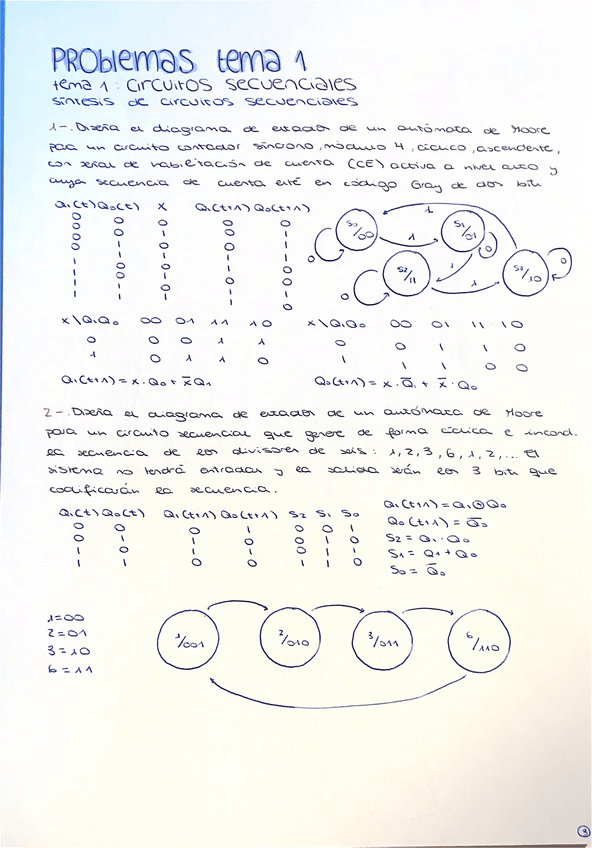 PROBLEMAS tema 1
tema 1: CIRCUITOS SECUENCIALES
SÍNTESIS DE CIRCUITOS SECUENCIALES
1-. Diseña el diagrama de estados de un autómata de Moore
para un circuito contador síncrono, módulo 4, cíclico, ascendente,
con señal de habilitación de cuenta (CE) activa a nivel alto y
cuya secuencia de cuenta esté en código Gray de dos bits
Q1(t) Q0(t) X Q1(t+1) Q0(t+1)
0 0 0 0 0
0 0 1 0 1
0 1 0 0 1
0 1 1 1 1
S0/00
S1/01
S2/11
S3/10
1
1
1
1
0
0
0
0
X\Q1Q0 00 01 11 10
0 0 0 1 1
1 0 1 1 0
Q1(t+1) = X·Q0 + X̅Q1
X\Q1Q0 00 01 11 10
0 0 1 1 0
1 1 1 0 0
Q0(t+1) = X·Q̅1 + X̅·Q0
2-. Diseña el diagrama de estados de un autómata de Moore
para un circuito secuencial que genere de forma cíclica e incond.
la secuencia de los divisores de seis: 1, 2, 3, 6, 1, 2, ... El
sistema no tendrá entradas y la salida serán los 3 bits que
codificarán la secuencia.
Q1(t) Q0(t) Q1(t+1) Q0(t+1) S2 S1 S0
0 0 0 1 0 0 1
0 1 1 0 0 1 0
1 0 1 1 0 1 1
1 1 0 0 1 1 0
Q1(t+1) = Q1⊕Q0
Q0(t+1) = Q̅0
S2 = Q1·Q0
S1 = Q1+Q0
S0 = Q̅0
1=00
2=01
3=10
6=11
1/001
2/010
3/011
6/110
9